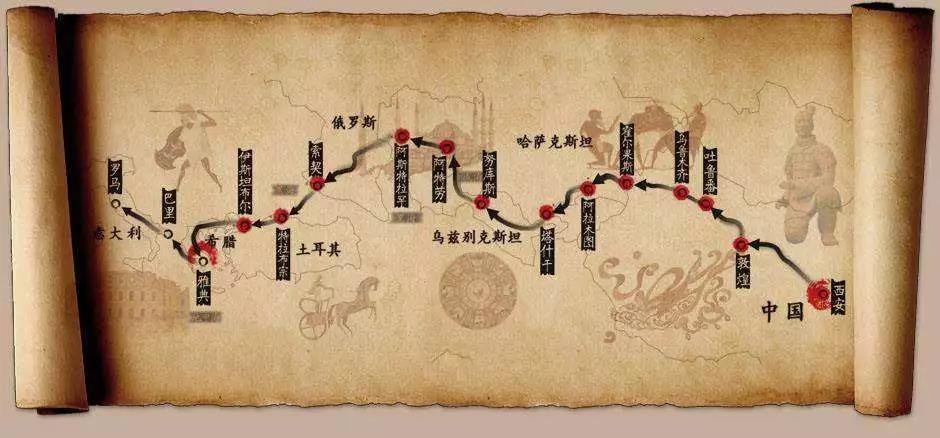 罗马
巴里
意大利
雅典
希腊
伊斯坦布尔
特拉布宗
土耳其
索契
俄罗斯
阿斯特拉罕
阿特劳
努库斯
乌兹别克斯坦
塔什干
阿拉木图
哈萨克斯坦
霍尔果斯
乌鲁木齐
吐鲁番
敦煌
中国
西安